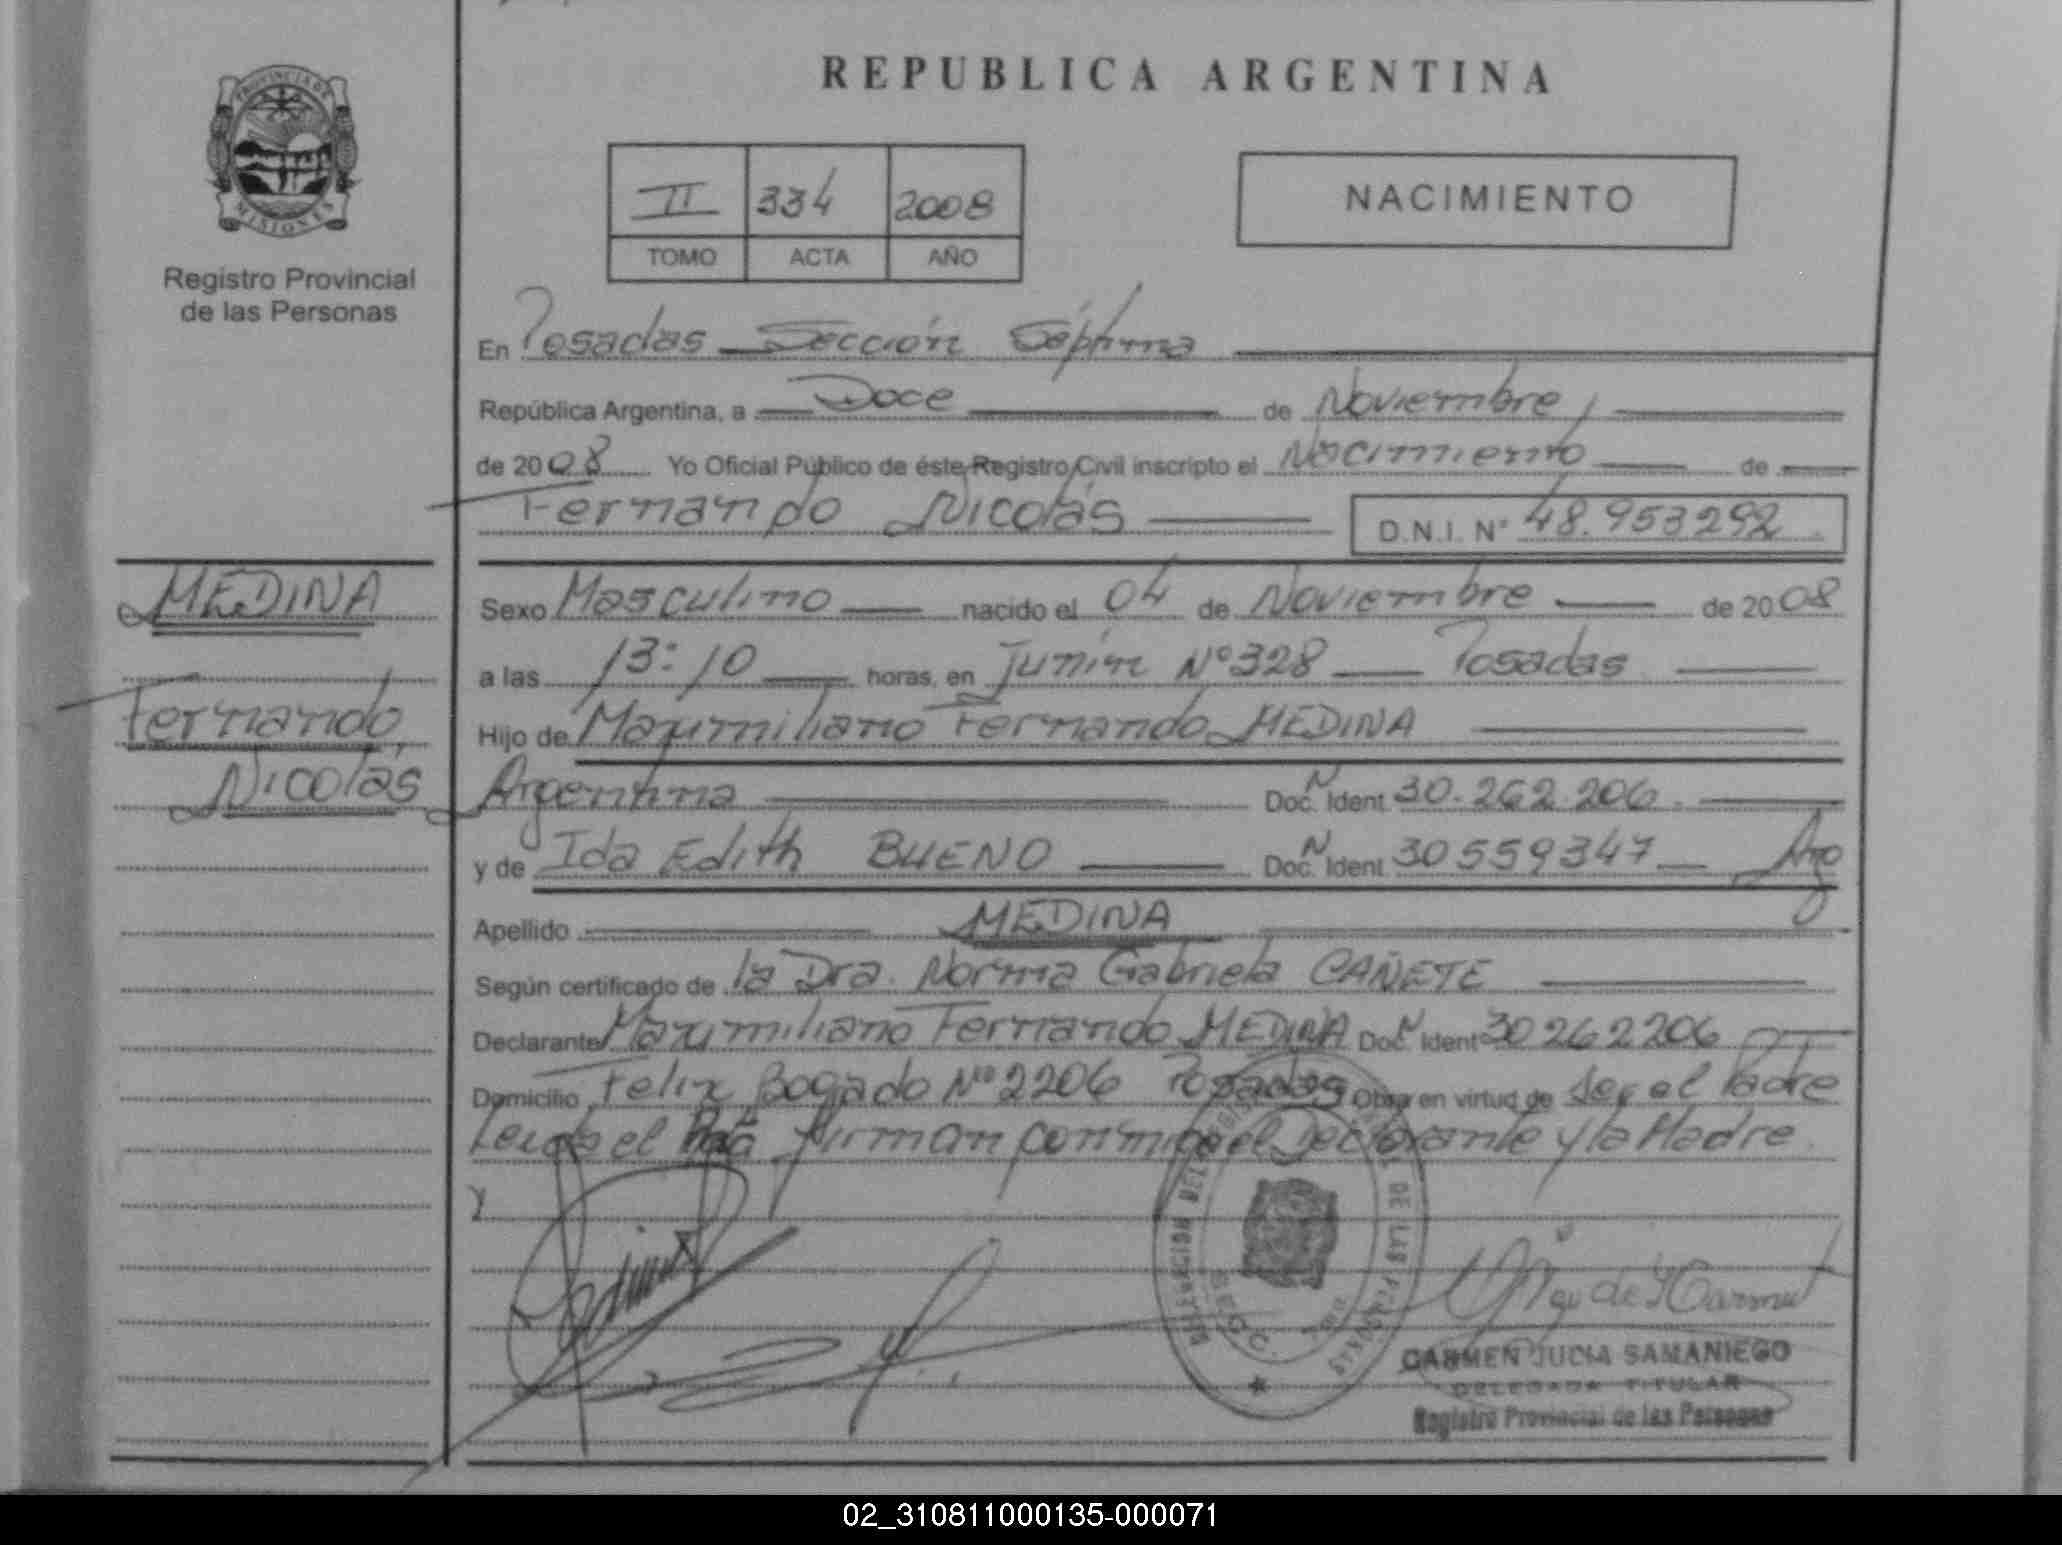 REPUBLICA ARGENTINA
PROVINCIA DE
MISIONES
Registro Provincial
de las Personas
II 334 2008
TOMO ACTA AÑO
NACIMIENTO
En Posadas Sección Séptima
República Argentina, a Doce de Noviembre,
de 2008 Yo Oficial Público de éste Registro Civil inscripto el Nacimiento de
Fernando Nicolás D.N.I. Nº 48.953292
MEDINA
Fernando,
Nicolás
Sexo Masculino nacido el 04 de Noviembre de 2008
a las 13:10 horas, en Junín Nº 328 Posadas
Hijo de Maximiliano Fernando MEDINA
Argentina Doc. N Ident 30.262.206
y de Ida Edith BUENO Doc. N Ident 30559347 Arg
Apellido MEDINA
Según certificado de la Dra. Norma Gabriela CAÑETE
Declarante Maximiliano Fernando MEDINA Doc. N Ident 30262206
Domicilio Felix Bogado Nº 2206 Posadas Obra en virtud de ser el Padre
Leida el firman conmigo el Declarante y la Madre
DE LAS PERSONAS
CARMEN LUCIA SAMANIEGO
DELEGADA TITULAR
Registro Provincial de las Personas
02_310811000135-000071